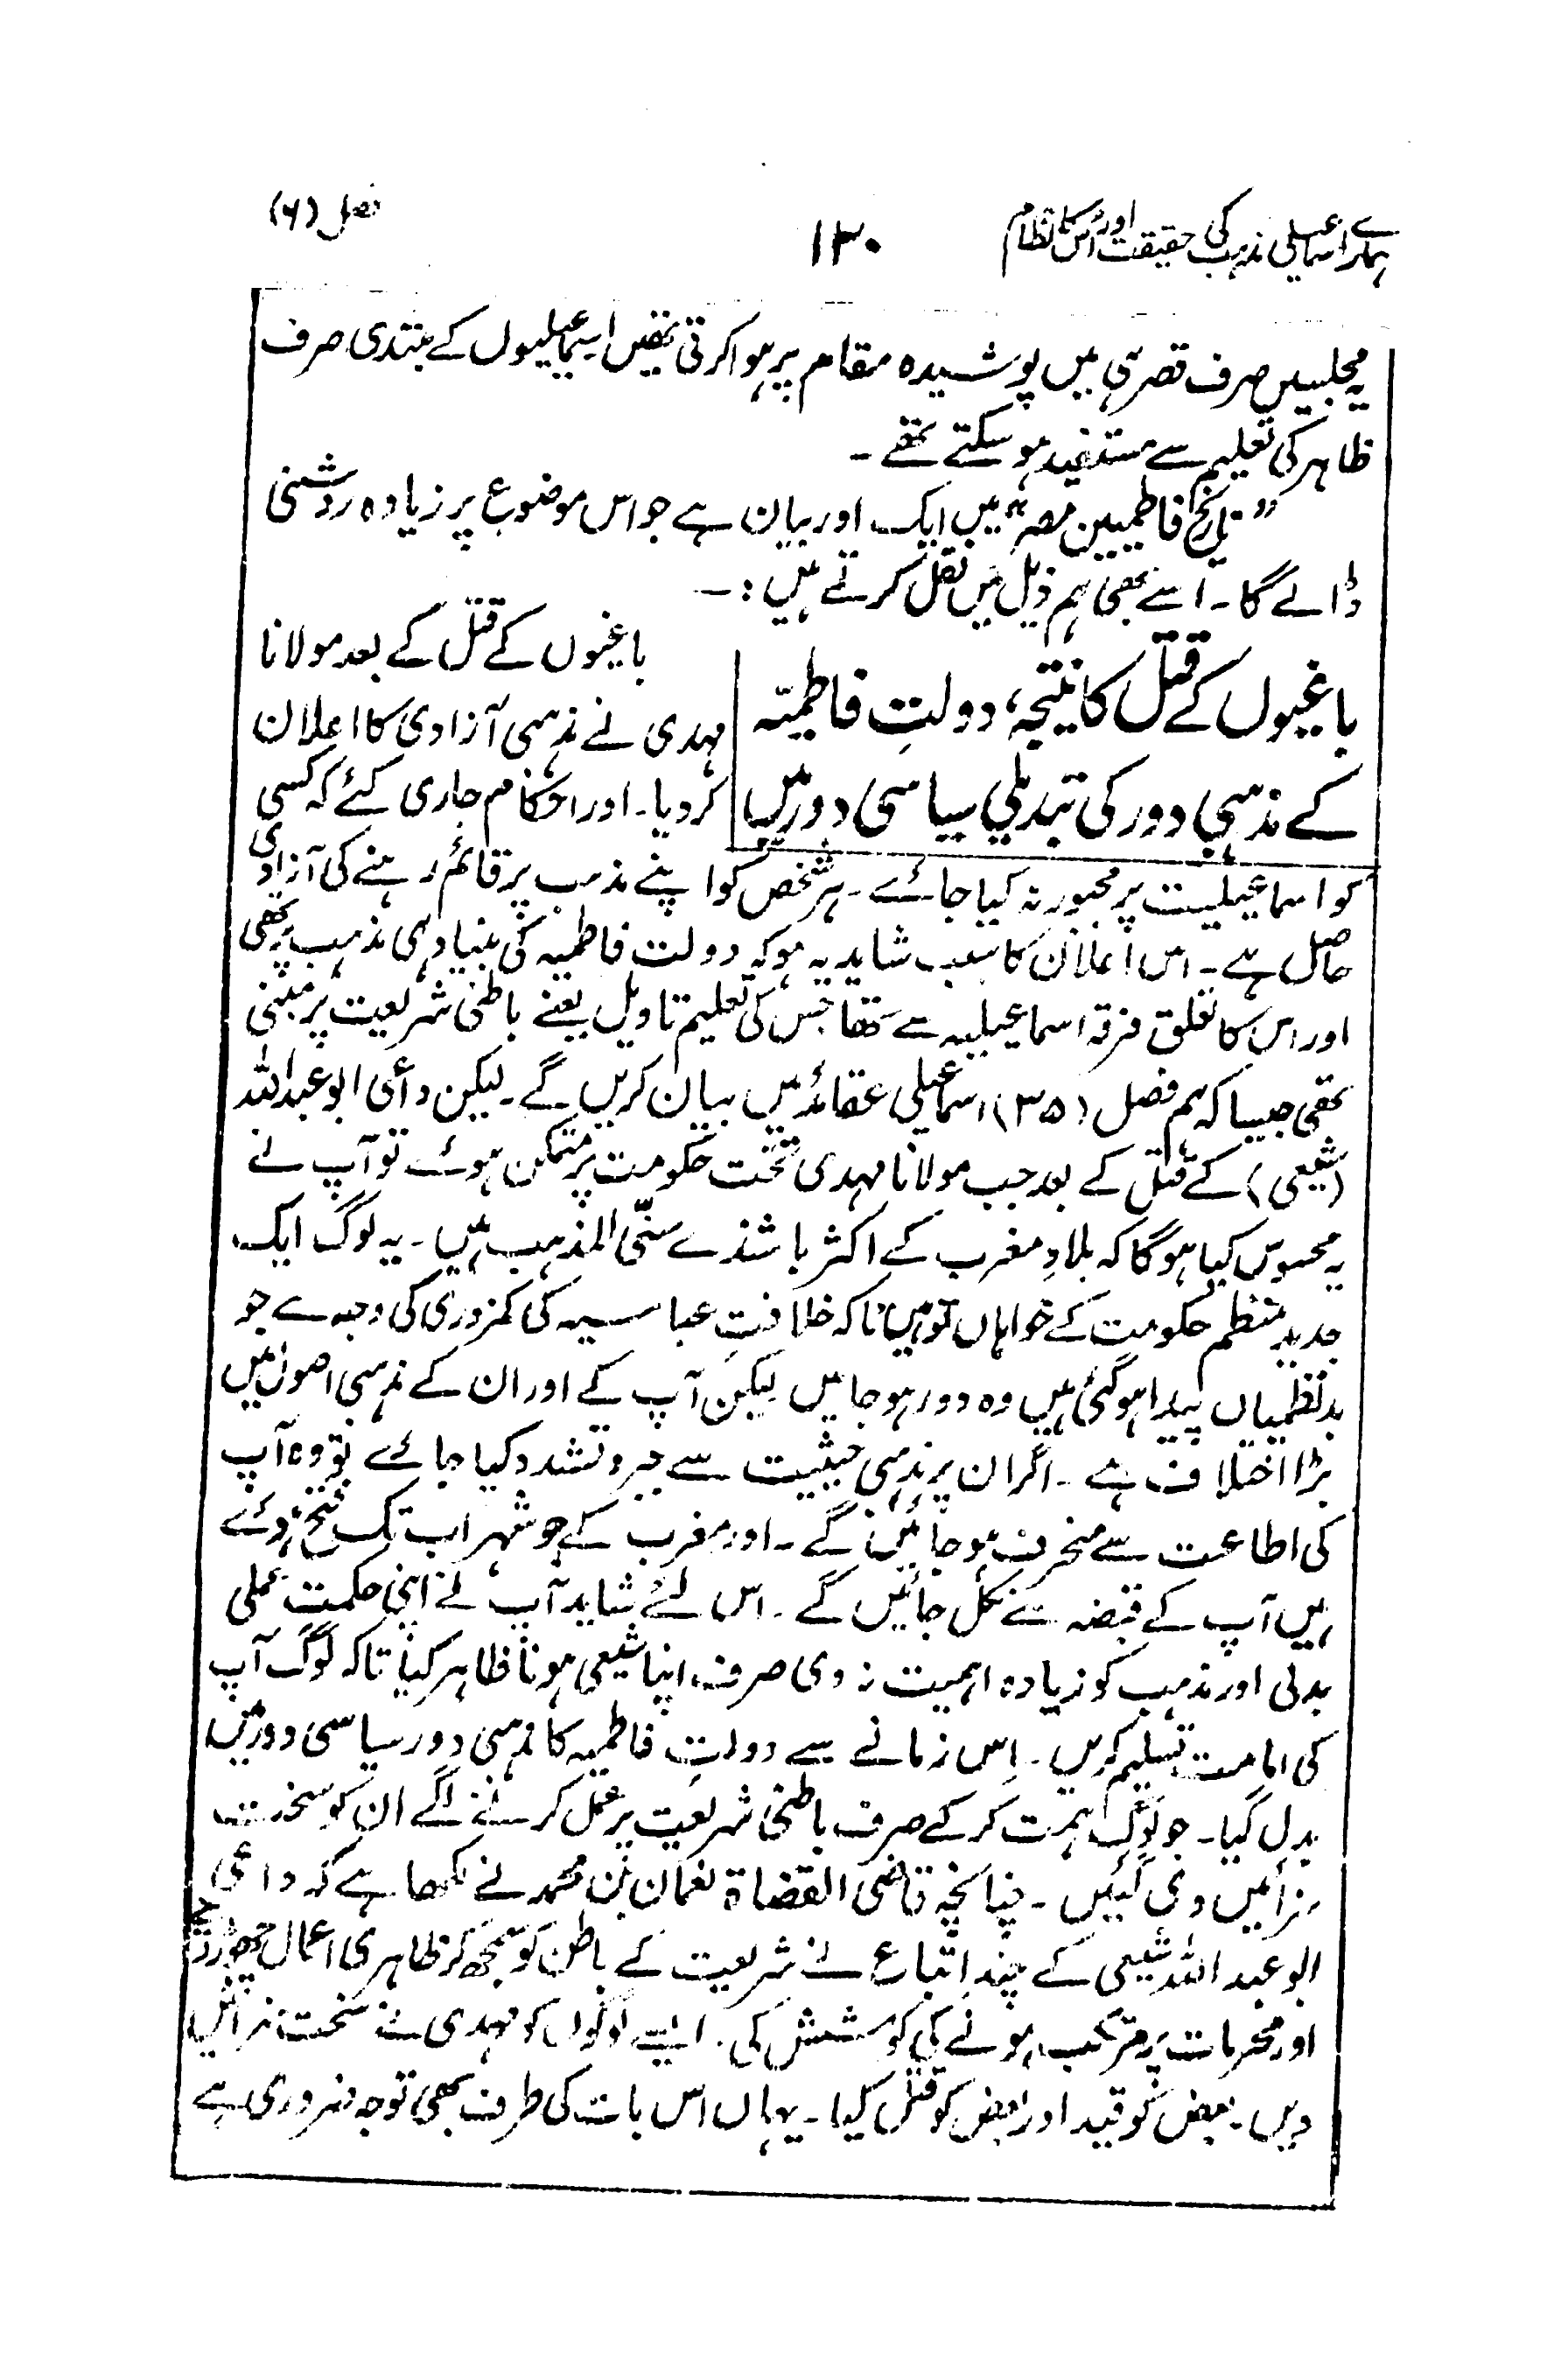 ہمارے اسماعیلی مذہب کی حقیقت اور اُس کا نظام
۱۳۰
فصل (۶)
یہ مجلسیں صرف قصر ہی میں پوشیدہ مقام پر ہوا کرتی تھیں اسماعیلیوں کے مبتدی صرف
ظاہر کی تعلیم سے مستفید ہو سکتے تھے ۔
"تاریخ فاطمیین مصر" میں ایک اور بیان ہے جو اس موضوع پر زیادہ روشنی
ڈالے گا ۔ اسے بھی ہم ذیل میں نقل کرتے ہیں :۔
باغیوں کے قتل کا نتیجہ، دولتِ فاطمیّہ
کے مذہبی دور کی تبدیلی سیاسی دور میں
باغیوں کے قتل کے بعد مولانا
مہدی نے مذہبی آزادی کا اعلان
کر دیا ۔ اور احکام جاری کئے کہ کسی
کو اسماعیلیت پر مجبور نہ کیا جائے ۔ ہر شخص کو اپنے مذہب پر قائم رہنے کی آزادی
حاصل ہے ۔ اس اعلان کا سبب شاید یہ ہو کہ دولت فاطمیہ کی بنیاد ہی مذہب پر تھی
اور اس کا تعلق فرقہ اسماعیلیہ سے تھا جس کی تعلیم تاویل یعنے باطنی شریعت پر مبنی
تھی جیسا کہ ہم فصل (۳۵) اسماعیلی عقائد میں بیان کریں گے ۔ لیکن داعی ابو عبداللہ
(شیعی) کے قتل کے بعد جب مولانا مہدی تخت حکومت پر متمکن ہوئے تو آپ نے
یہ محسوس کیا ہوگا کہ بلادِ مغرب کے اکثر باشندے سنّی المذہب ہیں ۔ یہ لوگ ایک
جدید منتظم حکومت کے خواہاں تو ہیں تاکہ خلافتِ عباسیہ کی کمزوری کی وجہ سے جو
بدنظمیاں پیدا ہو گئی ہیں وہ دور ہو جائیں لیکن آپ کے اور ان کے مذہبی اصول میں
بڑا اختلاف ہے ۔ اگر ان پر مذہبی حیثیت سے جبر و تشدد کیا جائے تو وہ آپ
کی اطاعت سے منحرف ہو جائیں گے ۔ اور مغرب کے جو شہر اب تک فتح ہوئے
ہیں آپ کے قبضہ سے نکل جائیں گے ۔ اس لئے شاید آپ نے اپنی حکمت عملی
بدلی اور مذہب کو زیادہ اہمیت نہ دی صرف اپنا شیعی ہونا ظاہر کیا تاکہ لوگ آپ
کی امامت تسلیم کریں ۔ اِس زمانے سے دولتِ فاطمیہ کا مذہبی دور سیاسی دور میں
بدل گیا ۔ جو لوگ ہمت کر کے صرف باطنی شریعت پر عمل کرنے لگے ان کو سخت
سزائیں دی گئیں ۔ چنانچہ قاضی القضاۃ نعمان بن محمد نے لکھا ہے کہ داعی
ابو عبداللہ شیعی کے چند اتباع نے شریعت کے باطن کو سمجھ کر ظاہری اعمال چھوڑ دیئے
اور محرمات پر مرتکب ہونے کی کوشش کی ۔ ایسے لوگوں کو مہدی نے سخت سزائیں
دیں ۔ بعض کو قید اور بعض کو قتل کیا ۔ یہاں اس بات کی طرف بھی توجہ ضروری ہے